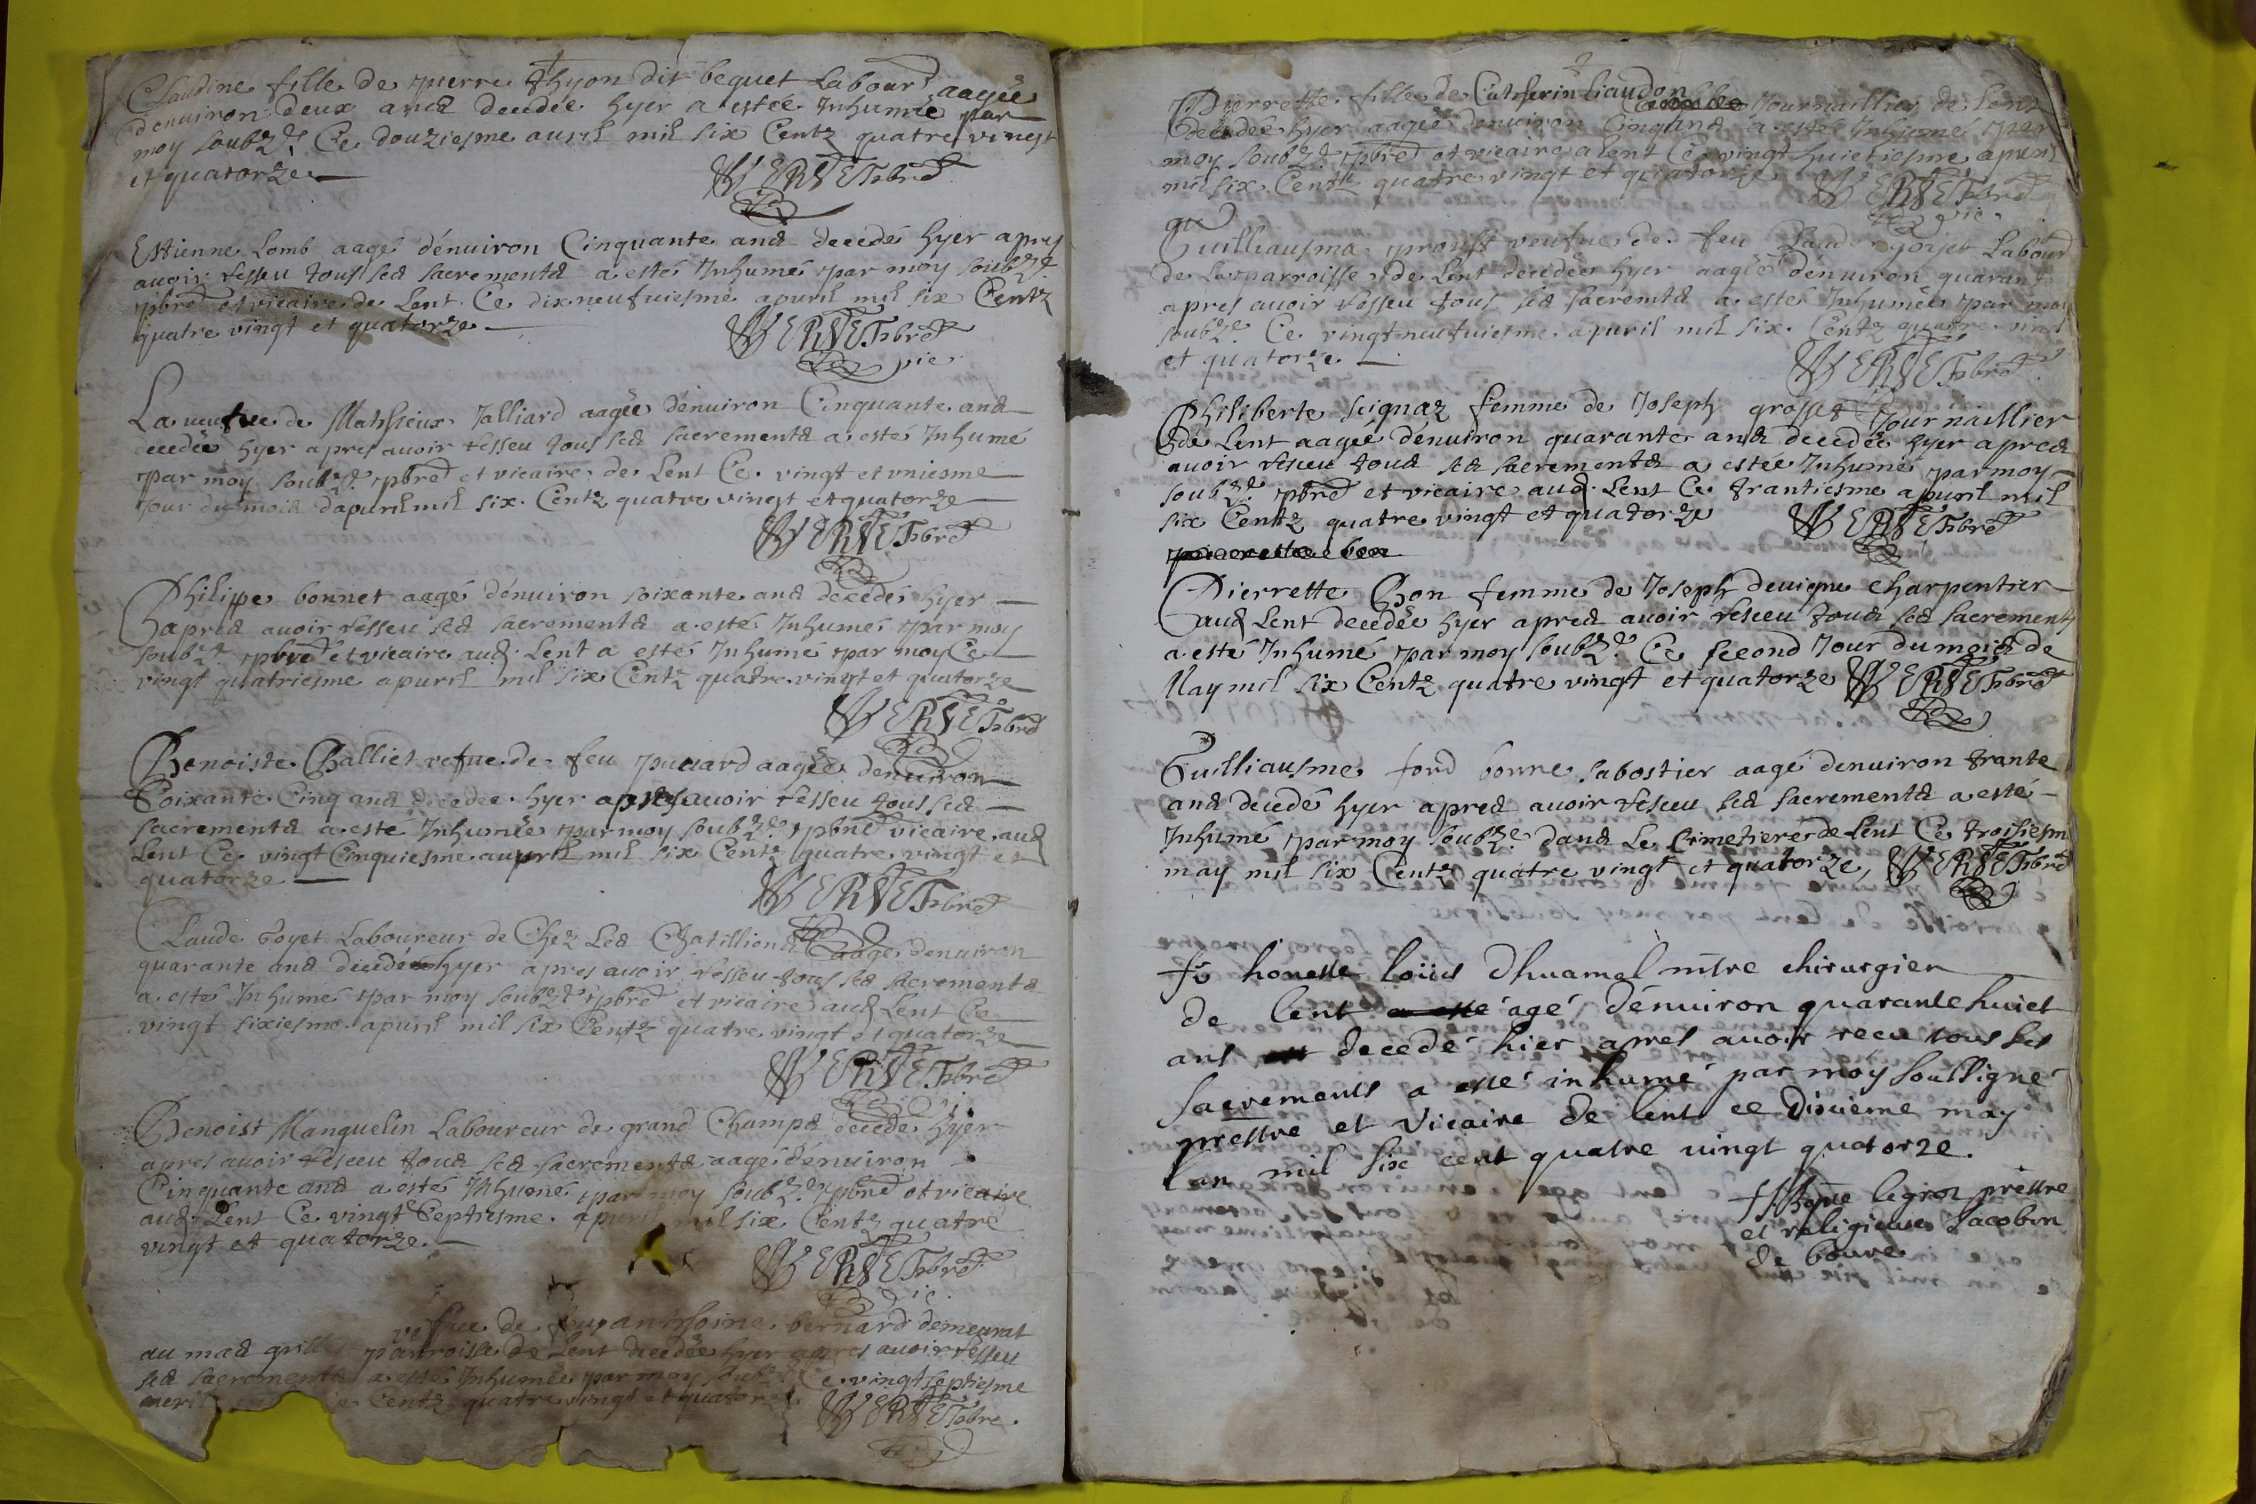 Claudine fille de pierre Thyon dit bequet Labour.r aagée
denuiron deux ans decedée hyer a estée Inhumée par
moy soubz.né Ce douziesme auril mil six Centz quatre vingt
et quatorze
VERVET pbre
Estienne Lomb aagé dénuiron Cinquante ans decedé hyer apres
auoir resseu tous ses sacrements a esté Inhumé par moy soubz.né
pbre et vicaire de Lent Ce dix neufuiesme apuril mil six Centz
quatre vingt et quatorze
VERVET pbre
vic.
La veufve de Mathieux Talliard aagée dénuiron Cinquante ans
decedée hyer apres auoir resseu tous ses sacrements a esté Inhumé
par moy soubz.né pbre et vicaire de Lent Ce vingt et vniesme
Jour du mois dapuril mil six Centz quatre vingt et quatorze
VERVET pbre
Philippe bonnet aagé dénuiron soixante ans decedé hyer
apres auoir resseu ses sacrements a esté Inhumé par moy
soubz.né pbre et vicaire aud. Lent a esté Inhumé par moy Ce
vingt quatriesme apuril mil six Centz quatre vingt et quatorze
VERVET pbre
Benoiste Balliet vefue de feu aagée denuiron
Soixante Cinq ans decedée hyer apres auoir resseu tous ses
sacrements a esté Inhumée par moy soubz.né pbre vicaire aud.
Lent Ce vingt Cinquiesme aupril mil six Centz quatre vingt et
quatorze
VERVET pbre
Claude Goyet Laboureur de Chez Les Chatillions aagé denuiron
quarante ans decedé hyer apres auoir resseu tous ses sacrements
a esté Inhumé par moy soubz.né pbre et vicaire aud. Lent Ce
vingt sixiesme apuril mil six Centz quatre vingt et quatorze
VERVET pbre
Benoist Manguelin Laboureur de grand Champs decedé hyer
apres auoir resceu tous ses sacrements aagé dénuiron
Cinquante ans a esté Inhumé par moy soubz.né pbre et vicaire
aud. Lent Ce vingt Septiesme apuril mil six Centz quatre
vingt et quatorze.
VERVET pbre
vic.
vefue de feu anthoine bernard demeurat
au mas parroisse de Lent decedée hyer apres auoir resseu
ses sacrements a esté Inhumée par moy soubz.né Ce vingt septiesme
Centz quatre vingt et quatorze
VERVET pbre.
Pierrette fille de Catherin liaudon Journaillier de Lent
Decedée hyer aagée denuiron Cinq ans a esté Inhumé par
moy soubz.né pbre et vicaire a Lent Ce vingt huictiesme apuril
mil six Centz quatre vingt et quatorze VERVET pbre
vic.
Guilliausma proust veufue de feu Goyet Labour
de La parroisse de Lent decedée hyer aagée dénuiron quarant
apres auoir resseu tous ses sacremts a esté Inhumée par moy
soubz.né Ce vingt neufuiesme apuril mil six Centz quatre
et quatorze.
VERVET pbre
Philiberte seignaz femme de Joseph grosset Journaillier
de Lent aagée dénuiron quarante ans decedée hyer apres
auoir resceu tous ses sacrements a estée Inhumé par moy
soubz.né pbre et vicaire aud. Lent Ce trantiesme apuril mil
six Centz quatre vingt et quatorze VERVET pbre
Pierrette Bon femme de Joseph deuigne Charpentier
aud. Lent decedée hyer apres auoir resceu tous ses sacrements
a esté Inhumé par moy soubz.né Ce second Jour du mois de
May mil six Centz quatre vingt et quatorze VERVET pbre
Guilliausme fond bonne sabostier aagé denuiron trante
ans decedé hyer apres auoir resceu ses sacrements a esté
Inhumé par moy soubz.né dans Le Cimetiere de Lent Ce troisiesm
may mil six Centz quatre vingt et quatorze, VERVET pbre
honeste loüis dhuamel mtre chirurgien
de lent agé dénuiron quarante huict
ans decedé hier apres auoir receu tous ses
sacrements a esté inhumé par moy soussigné
prestre et vicaire de lent ce dixieme may
lan mil six cent quatre vingt quatorze.
legros prestre
et religieux Jacobin
de bourc